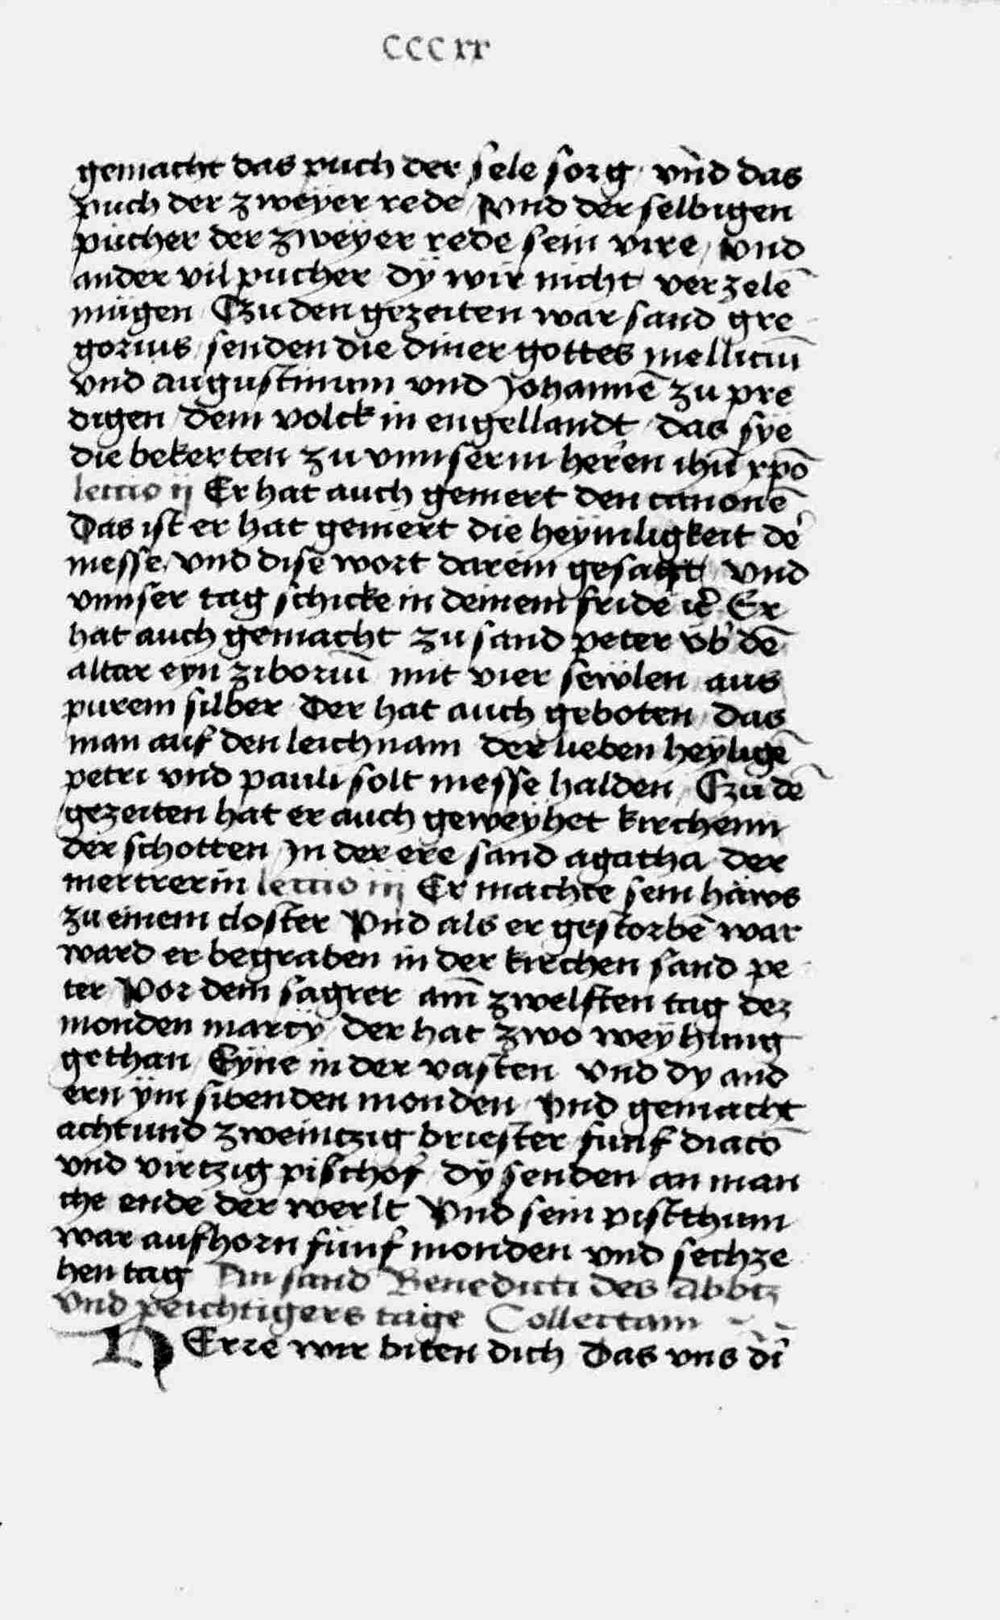 CCCxx
gemacht das puch der sele sorg vnd das
puch der zweyer rede Vnd der selbigen
pücher der zweyer rede sein vire, vnd
ander vil pucher dÿ wir nicht verzelē
mügen Czu den gezeiten war sand gre
gorius senden die diner gottes mellitū
vnd augustinum vnd Johannē zu pre
digen dem volck in engellandt das sye
die bekerten zu vnnserm herren ihū xpō
lectio ij Er hat auch gemert den canonē
Das ist er hat gemert die heymligkeit de᷑
messe, vnd dise wort darein gesatzt vnd
vnnser tag schicke in deinem fride ꝛc̄ Er
hat auch gemacht zu sand peter vb᷑ dē
altar eyn ziboriū mit vier sewlen aus
purem silber Der hat auch geboten das
man auf den leichnam der lieben heyligē
petri vnd pauli solt messe halden, Czu dē
gezeiten hat er auch geweyhet kirchenn
der schotten in der ere sand agatha der
mertrerin lectio iij Er machte sein haws
zu einem closter Vnd als er gestorbē war
ward er begraben in der kirchen sand pe
ter Vor dem sagrer am̄ zwelften tag dez
monden marcÿ der hat zwo weyhung
gethan Eyne in der vasten vnd dy and
ern ÿm sibenden monden Vnd gemacht
achtund zweintzig briester funf diacō
vnd virtzig pischof dÿ senden an man
che ende der werlt Vnd sein pistthum
war aufhorn fünf monden vnd sechze
hen tag An sand Benedicti des Abbtz
vnd peichtigers tage Collectam
HErre wir biten dich Das vns di᷑